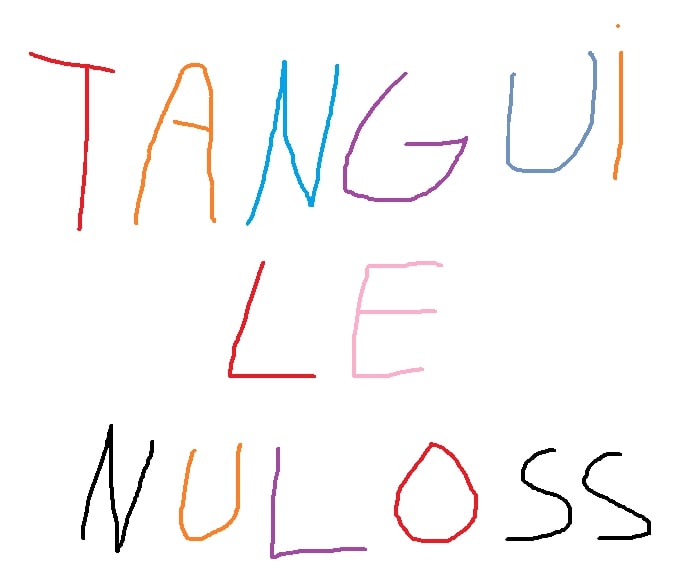 TANGUi
LE
NULOSS